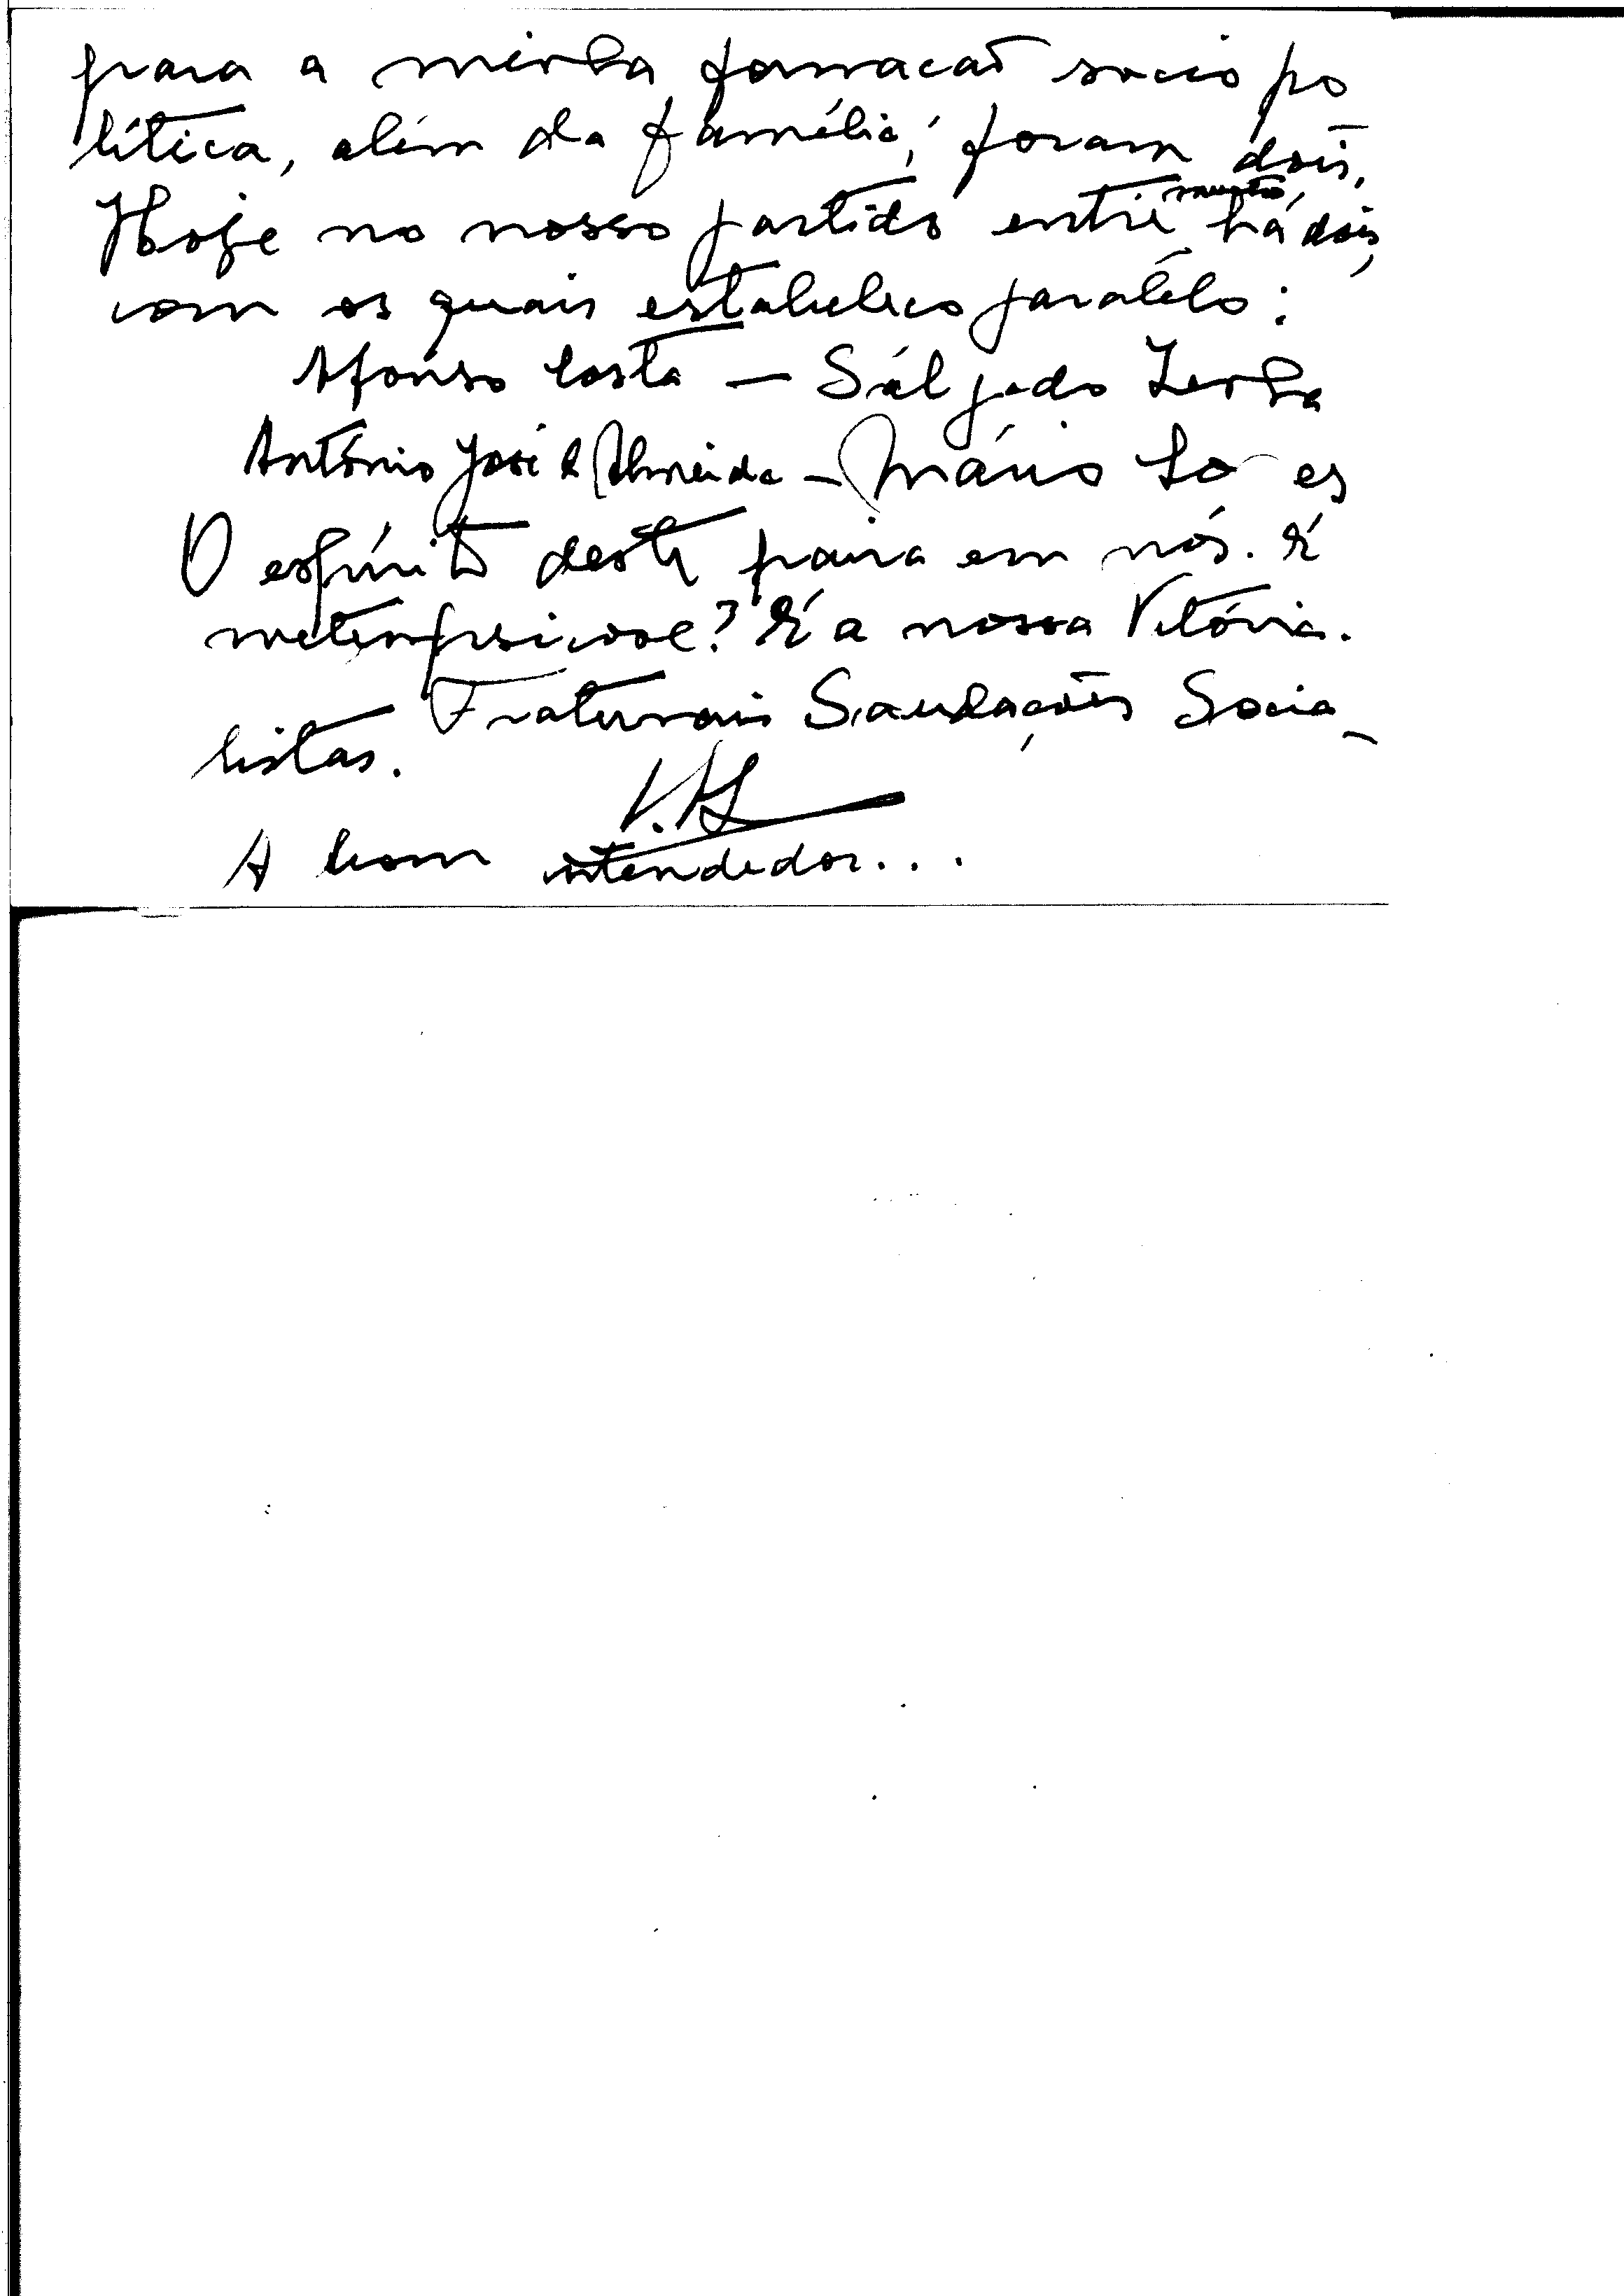 para a minha formacaõ socio po
lítica, além da família, foram dois,
Hoje no nosso partido entre muitos, há dois,
com os quais estabeleco paralelo:
Afonso Costa — Salgado Zenha
António José d'Almeida — Mário So es
O espírito deste paira em nós. É
metempsicose? É a nossa Vitória.
Fraternais Saudações Socia_
listas.
A bom intendedor...